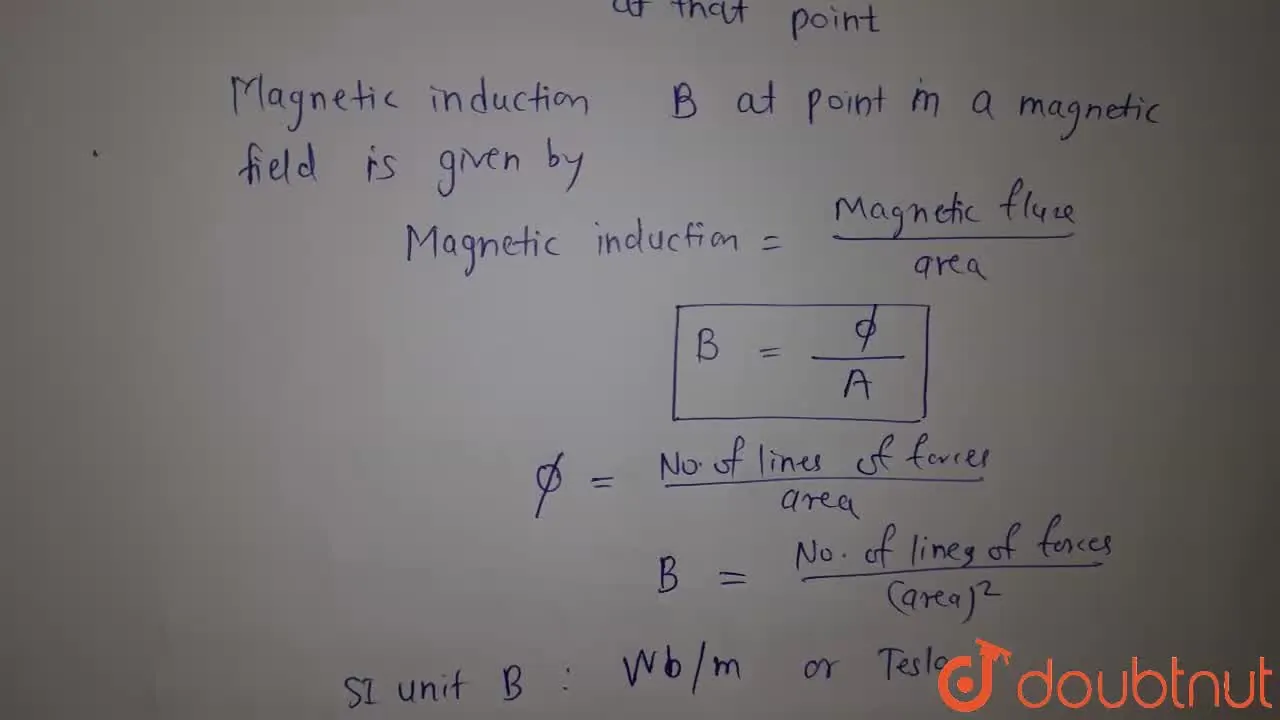 at that point
Magnetic induction B at point in a magnetic
field is given by
Magnetic induction = Magnetic fluxe
area
B = ϕ
A
ϕ = No. of lines of forces
area
B = No. of lines of forces
(area)²
SI unit B : Wb/m or Tesla
doubtnut